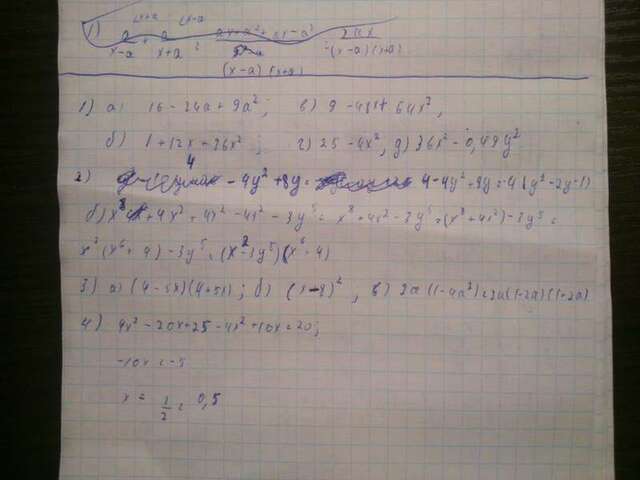 1) а) 16 - 24a + 9a²; в) 9 - 48x + 64x²,
б) 1 + 12x + 36x²; г) 25 - 4x², д) 36x² - 0,49y²
2) 4 - 4y² + 8y = 4 - 4y² + 8y = -4(y² - 2y - 1)
б) x⁸ + 4x² = 4x² - 4x² - 3y⁵ = x⁸ + 4x² - 3y⁵ = (x⁸ + 4x²) - 3y⁵ =
x²(x⁶ + 4) - 3y⁵ = (x² - 3y⁵)(x⁶ - 4)
3) а) (4 - 5x)(4 + 5x); б) (x - )², в) 2a(1 - 4a²) = 2a(1 - 2a)(1 + 2a)
4) 4x² - 20x + 25 - 4x² + 10x = 20;
-10x = -5
x = 1/2 = 0,5